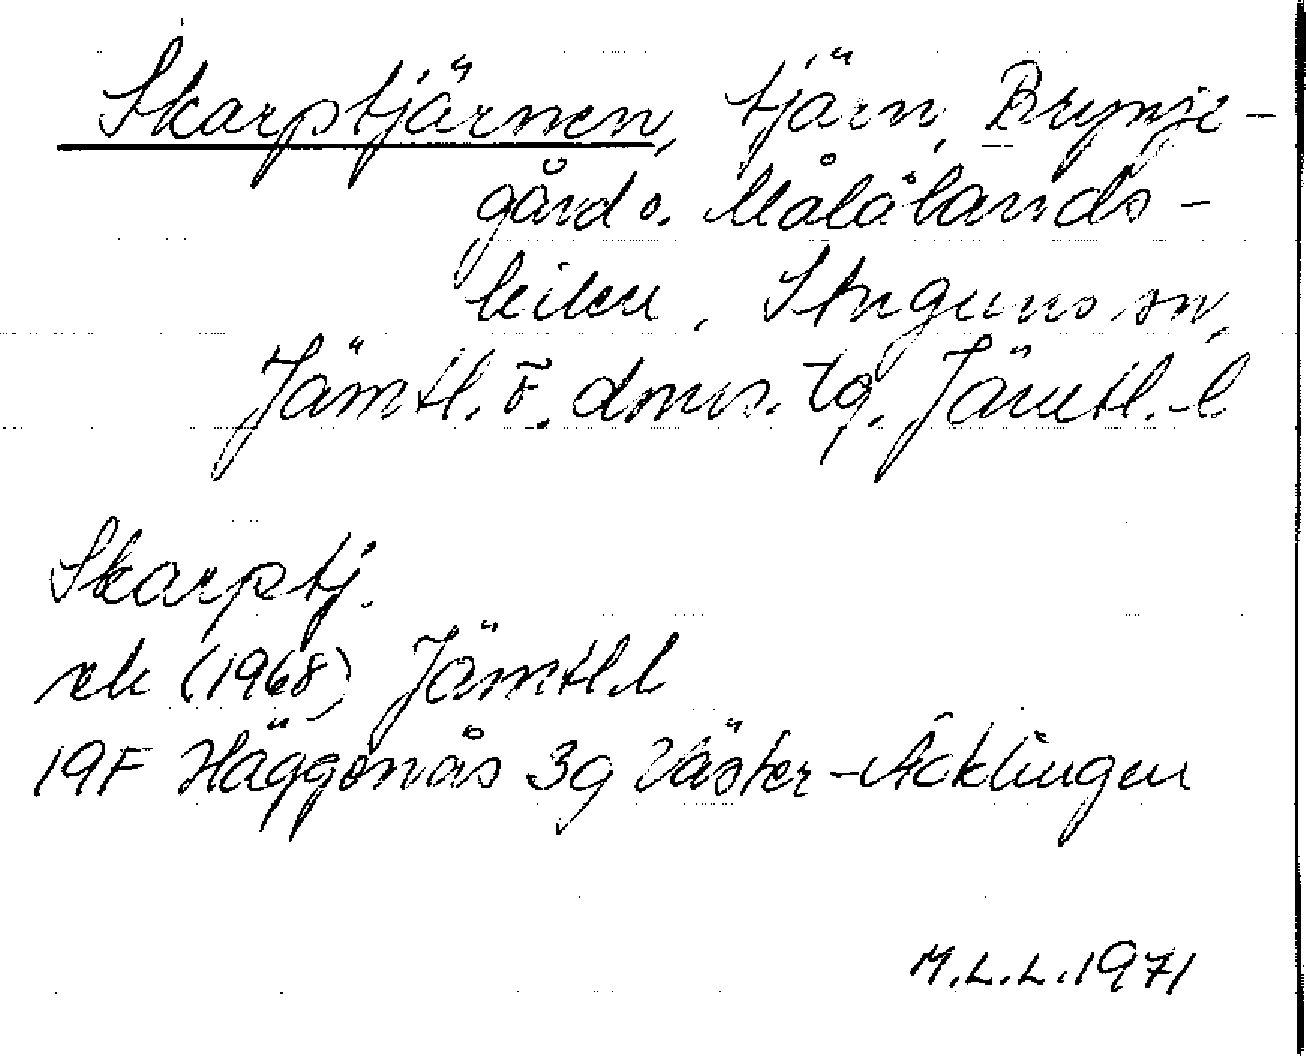 Skarptjärnen, tjärn, Brynje-
gård o. Målåbands-
leiken, Stuguns sn,
Jämtl. Ö. doms. tg. Jämtl. l
Skarptj.
rek (1968) Jämtl. l
19F Häggenås 3g Väster-Acklingen
M.L.L. 1971